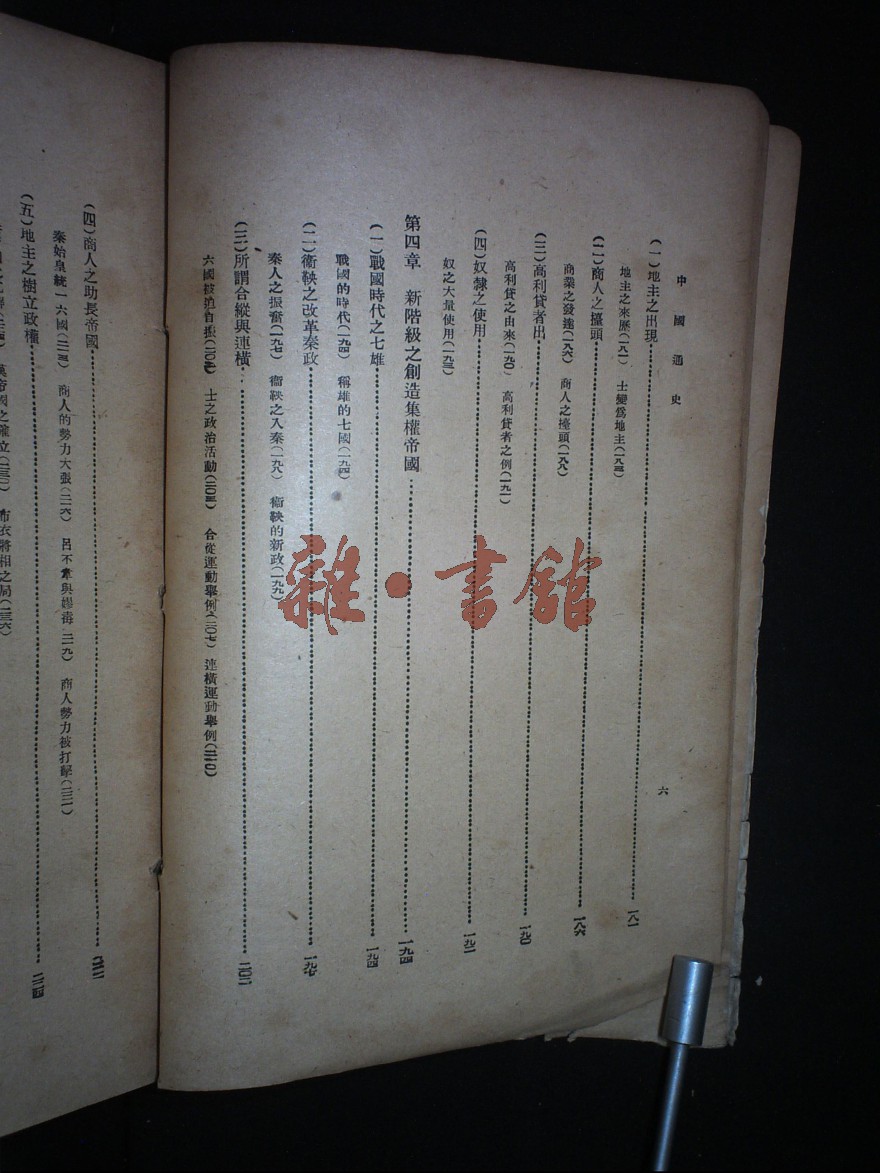 中國通史
六
(一)地主之出現……一八一
地主之來歷(一八一) 士變爲地主(一八三)
(二)商人之擡頭……一八六
商業之發達(一八六) 商人之擡頭(一八八)
(三)高利貸者出……一九〇
高利貸之由來(一九〇) 高利貸者之例(一九一)
(四)奴隸之使用……一九二
奴之大量使用(一九三)
第四章 新階級之創造集權帝國……一九四
(一)戰國時代之七雄……一九四
戰國的時代(一九四) 稱雄的七國(一九四)
(二)衞鞅之改革秦政……一九七
秦人之振奮(一九七) 衞鞅之入秦(一九八) 衞鞅的新政(一九九)
(三)所謂合縱與連橫……二〇二
六國被迫自振 士之政治活動 合從運動舉例(二〇七) 連橫運動舉例(二一〇)
(四)商人之助長帝國
秦始皇統一六國 商人的勢力大張(二一六) 呂不韋與嫪毐 二一九) 商人勢力被打擊(二二一)
(五)地主之樹立政權……二二四
漢帝國之確立 布衣將相之局
雜·書館